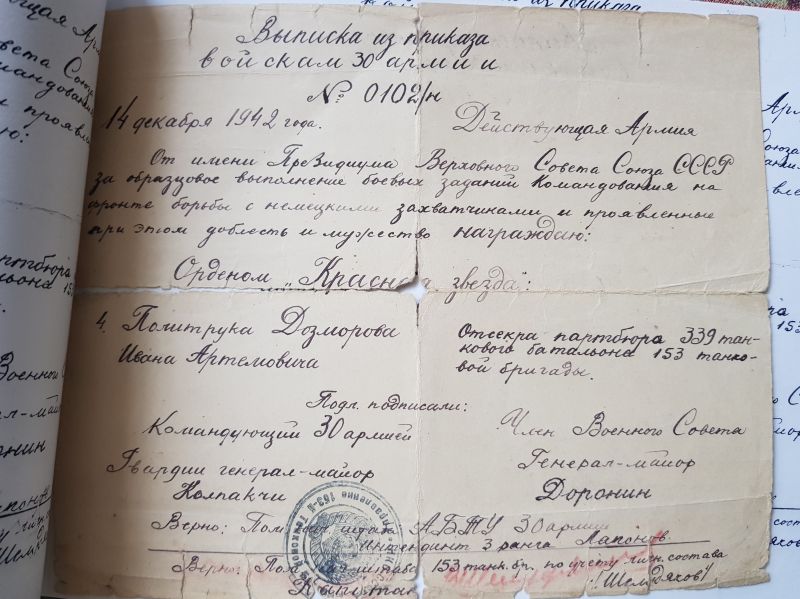 Выписка из приказа
войскам 30 армии
№ 0102/н
14 декабря 1942 года. Действующая Армия
От имени Президиума Верховного Совета Союза СССР
за образцовое выполнение боевых заданий командования на
фронте борьбы с немецкими захватчиками и проявленные
при этом доблесть и мужество награждаю:
Орденом „Красная звезда“:
4. Политрука Дозморова
Ивана Артемовича
Отсекра партбюра 339 тан-
кового батальона 153 танко-
вой бригады.
Подл. подписали:
Командующий 30 армией
Гвардии генерал-майор
Колпакчи
Член Военного Совета
Генерал-майор
Доронин
Верно: АБТУ 30 армии
Интендант 3 ранга Лапонов
Верно: Пом. нач. штаба 153 танк. бр. по учету личн. состава